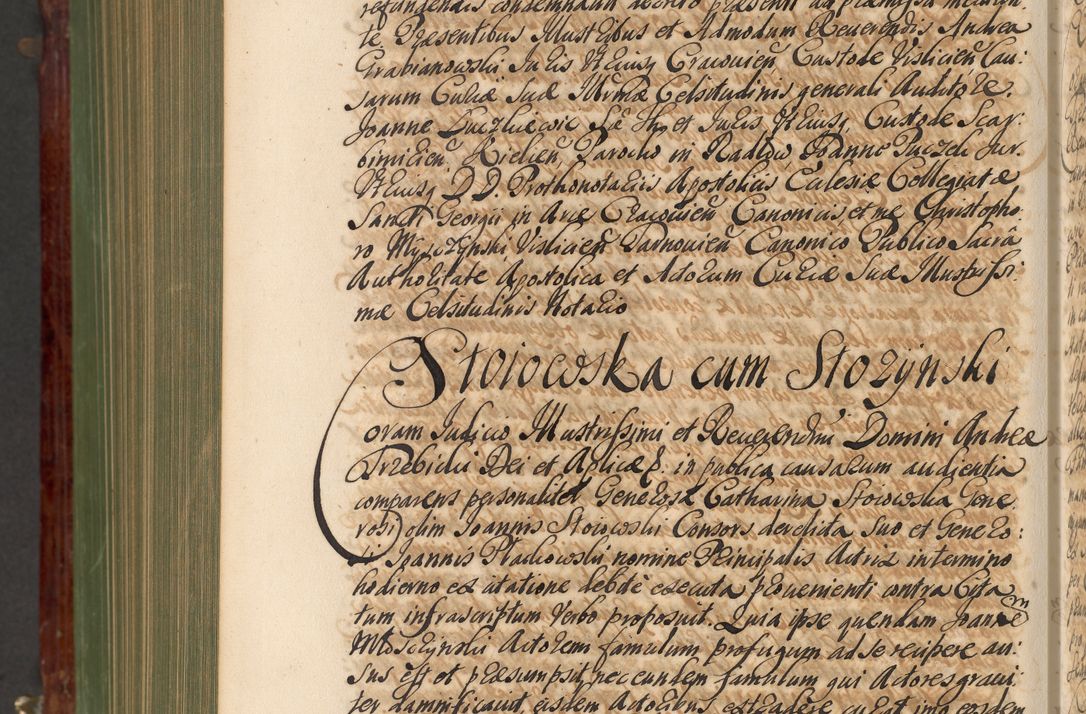 refungendis condemnatum decreto praesenti ad praemissa median:
te. Praesentibus Illustribus et Admodum Reverendis Andrea
Grabianowski Juris Vtriusq Cracovien̄ Custode Vislicien̄ Cau:
sarum Curiæ Suæ Illrmæ Celsitudinis generali Auditore.
Joanne Kuczkiewic Sæ Th. et Juris Vtriusq, Custode Scar:
bimirien̄. Kielcien̄ Parocho in Radłow Joanne Puczek Jur.
Vtriusq D.D. Prothonotariis Apostolicis Ecclesiæ Collegiatæ
Sancti Georgii in Arce Cracovien̄ Canonicis et me Christopho:
ro Myszynski Vislicien̄ Tarnovien̄ Canonico Publico Sacrâ
Authoritate Apostolica et Actorum Curiæ Suæ Illustrissi:
mæ Celsitudinis Notario
Stoiowska cum Stozynski
Coram Judicio Illustrissimi et Reverendmi Domini Andreæ
Trzebicki Dei et Aplicæ p. in publica causarum audientia
comparens personaliter Generosa Catharina Stoiowska Gene
rosi olim Joannis Stoiowski Consors derelicta suo et Genero:
si Joannis Plackowski nomine Principalis Actrix in termino
hodierno ex citatione debite executa provenienti contra Cita
tum infrascriptum Verbo proposuit. Quia ipse quendam Joannem
Moszczynski Actorem famulum profugum ad se recipere au:
sus est et præsumpsit, nec eundem famulum qui Actores gravi:
ter damnificavit, eisdem Actoribus extradere curat imo eosdem